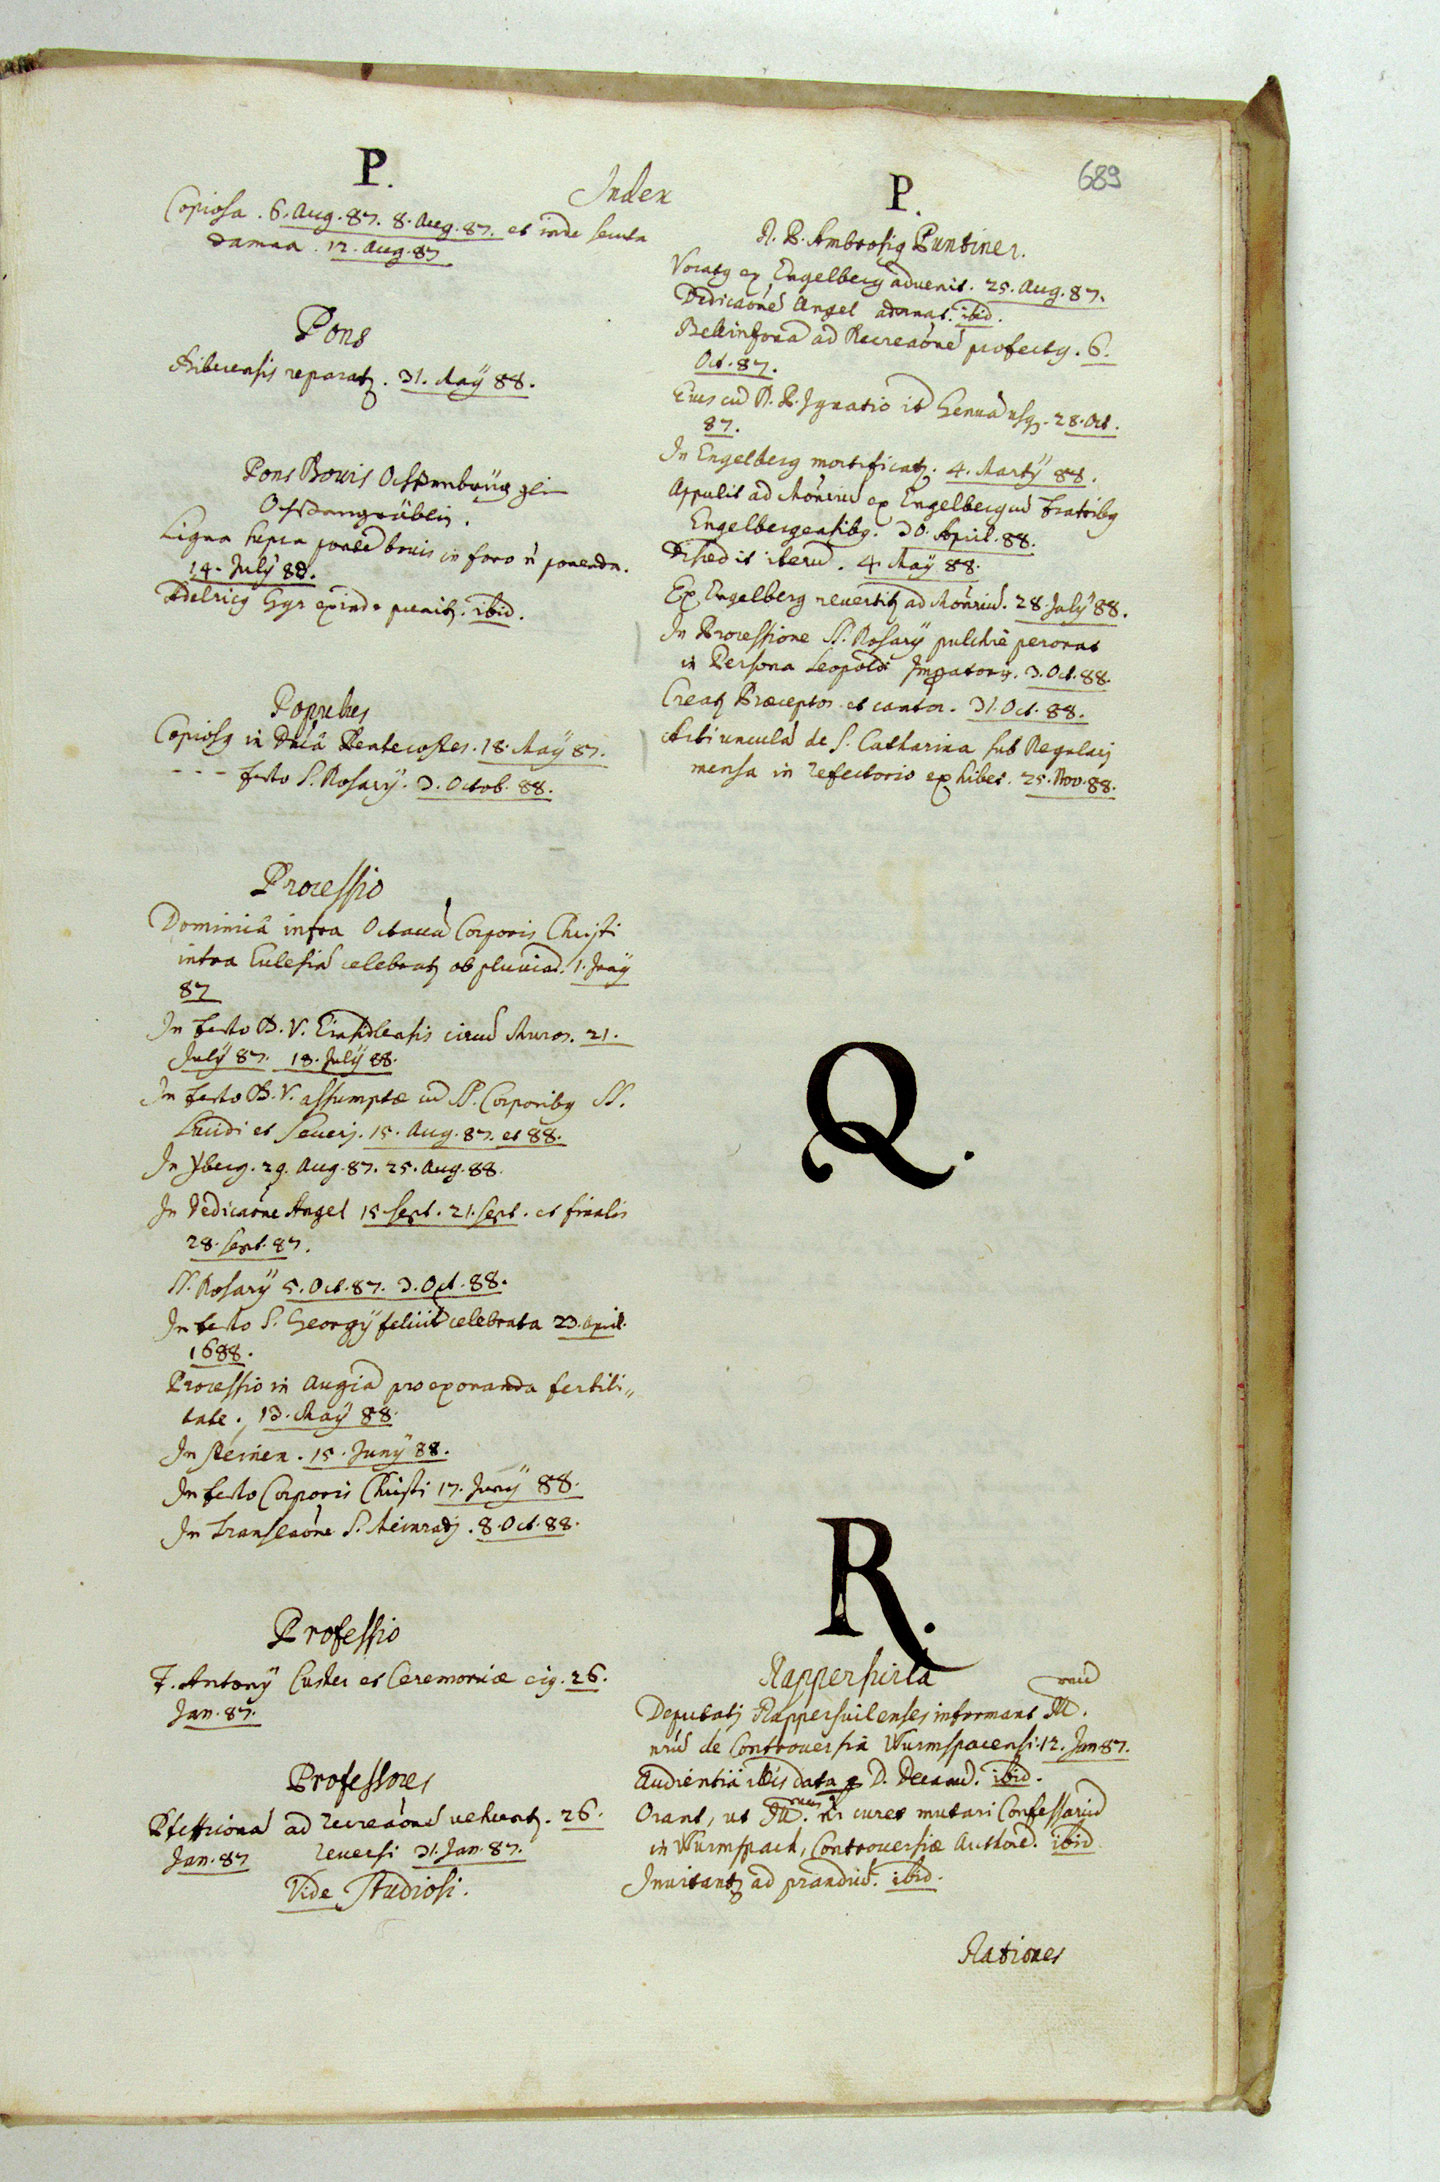 689
Index
P.
Copiosa. 6. Aug. 87. 8. Aug. 87. et inde secuta
damna. 12. Aug. 87
Pons
reparatꝫ. 31. Maÿ 88.
Pons Bovis
Ligna supra pontē bovis in foro ñ ponenda.
14. Julÿ 88.
exinde punitꝫ. ibid.
Populus
Copiosꝯ in Dn̄icâ Pentecostes. 18. Maÿ 87.
- - - festo S. Rosarÿ. 3. Octob. 88.
Processio
Dominicâ infra Octavā Corporis Christi
intra Ecclesiā celebratꝫ ob pluviā. 1. Junÿ
87
In festo B. V. Einsidlensis circū Muros. 21.
Julÿ 87. 18. Julÿ 88.
In festo B. V. assumptæ cū SS. Corporibꝯ SS.
Lucidi et Severj. 15. Aug. 87. et 88.
In Yberg. 29. Aug. 87. 25. Aug. 88.
In Dedicaōne Angel 15 Sept. 21. Sept. et finalis
28. Sept. 87.
SS. Rosarÿ 5. Oct. 87. 3. Oct. 88.
In festo S. Georgÿ celebrata 23. April.
1688.
Processio in Augiā pro exoranda fertili„
tate. 13. Maÿ 88.
In Steinen. 15. Junÿ 88.
In festo Corporis Christi 17. Junÿ 88.
In Translaōne S. Meinradj. 8. Oct. 88.
Professio
F. Antonÿ Custer et Ceremoniæ eiꝯ. 26.
Jan. 87.
Professores
Pfefficonā ad recreaōnē vehuntꝫ. 26.
Jan. 87 reversi 31. Jan. 87.
Vide Studiosi.
P.
R. P. Ambrosiꝯ Püntiner.
Vocatꝯ ex Engelberg advenit. 25. Aug. 87.
Dedicaōnē Angel adornat. ibid.
Bellinzonā ad Recreaōnē profectꝯ. 6.
Oct. 87.
Eius cū R. P. Ignatio it Genuā usqꝫ. 28. Oct.
87.
In Engelberg mortificatꝫ. 4. Martÿ 88.
Appulit ad Mōriū ex Engelberg cū Fratribꝯ
Engelbergensibꝯ. 30. April. 88.
Discedit iterū. 4. Maÿ 88.
Ex Engelberg revertitꝫ ad Mōriū. 28. Julÿ 88.
In Processione SS. Rosarÿ pulchrè perorat
in Persona Leopoldi Impatoris. 3. Oct. 88.
Creatꝫ Præceptor et cantor. 31. Oct. 88.
Actiunculā de S. Catharina sub Regularj
mensa in refectorio exhibet. 25. Nov. 88.
Q.
R.
Rappersvila
Deputatj Rappersvilenses informant Rm̄.
nrū de Controversia Wurmspacensi. 12. Jan 87.
Audientia illis data a D. Decano. ibid.
Orant, ut Rm̄. nr curet mutari Confessariū
in Wurmspach, Controversiæ Authorē. ibid
Invitantꝫ ad prandiū. ibid.
Rationes